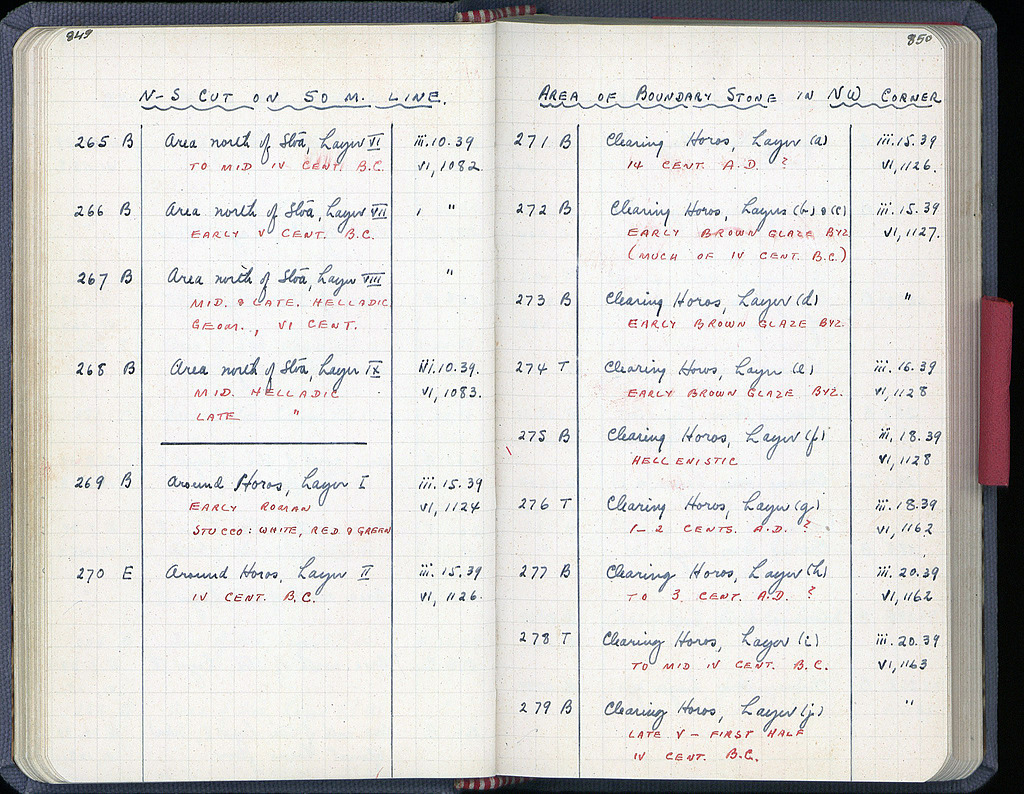 849
N-S CUT ON 50 M. LINE.
265 B Area north of Stoa, Layer VI iii.10.39
TO MID IV CENT. B.C. VI, 1082.
266 B Area north of Stoa, Layer VII "
EARLY V CENT. B.C.
267 B Area north of Stoa, Layer VIII "
MID. & LATE. HELLADIC
GEOM., VI CENT.
268 B Area north of Stoa, Layer IX iii.10.39.
MID. HELLADIC VI, 1083.
LATE "
269 B Around Horos, Layer I iii.15.39
EARLY ROMAN VI, 1124
STUCCO: WHITE, RED & GREEN
270 E Around Horos, Layer II iii.15.39
IV CENT. B.C. VI, 1126.
850
AREA OF BOUNDARY STONE IN NW CORNER
271 B Clearing Horos, Layer (a) iii.15.39
14 CENT. A.D. ? VI, 1126.
272 B Clearing Horos, Layers (b) & (c) iii.15.39
EARLY BROWN GLAZE BYZ. VI, 1127.
(MUCH OF IV CENT. B.C.)
273 B Clearing Horos, Layer (d) "
EARLY BROWN GLAZE BYZ.
274 T Clearing Horos, Layer (e) iii.16.39
EARLY BROWN GLAZE BYZ. VI, 1128
275 B Clearing Horos, Layer (f) iii.18.39
HELLENISTIC VI, 1128
276 T Clearing Horos, Layer (g) iii.18.39
1-2 CENTS. A.D. ? VI, 1162
277 B Clearing Horos, Layer (h) iii.20.39
TO 3 CENT. A.D. ? VI, 1162
278 T Clearing Horos, Layer (i) iii.20.39
TO MID IV CENT. B.C. VI, 1163
279 B Clearing Horos, Layer (j) "
LATE V - FIRST HALF
IV CENT. B.C.